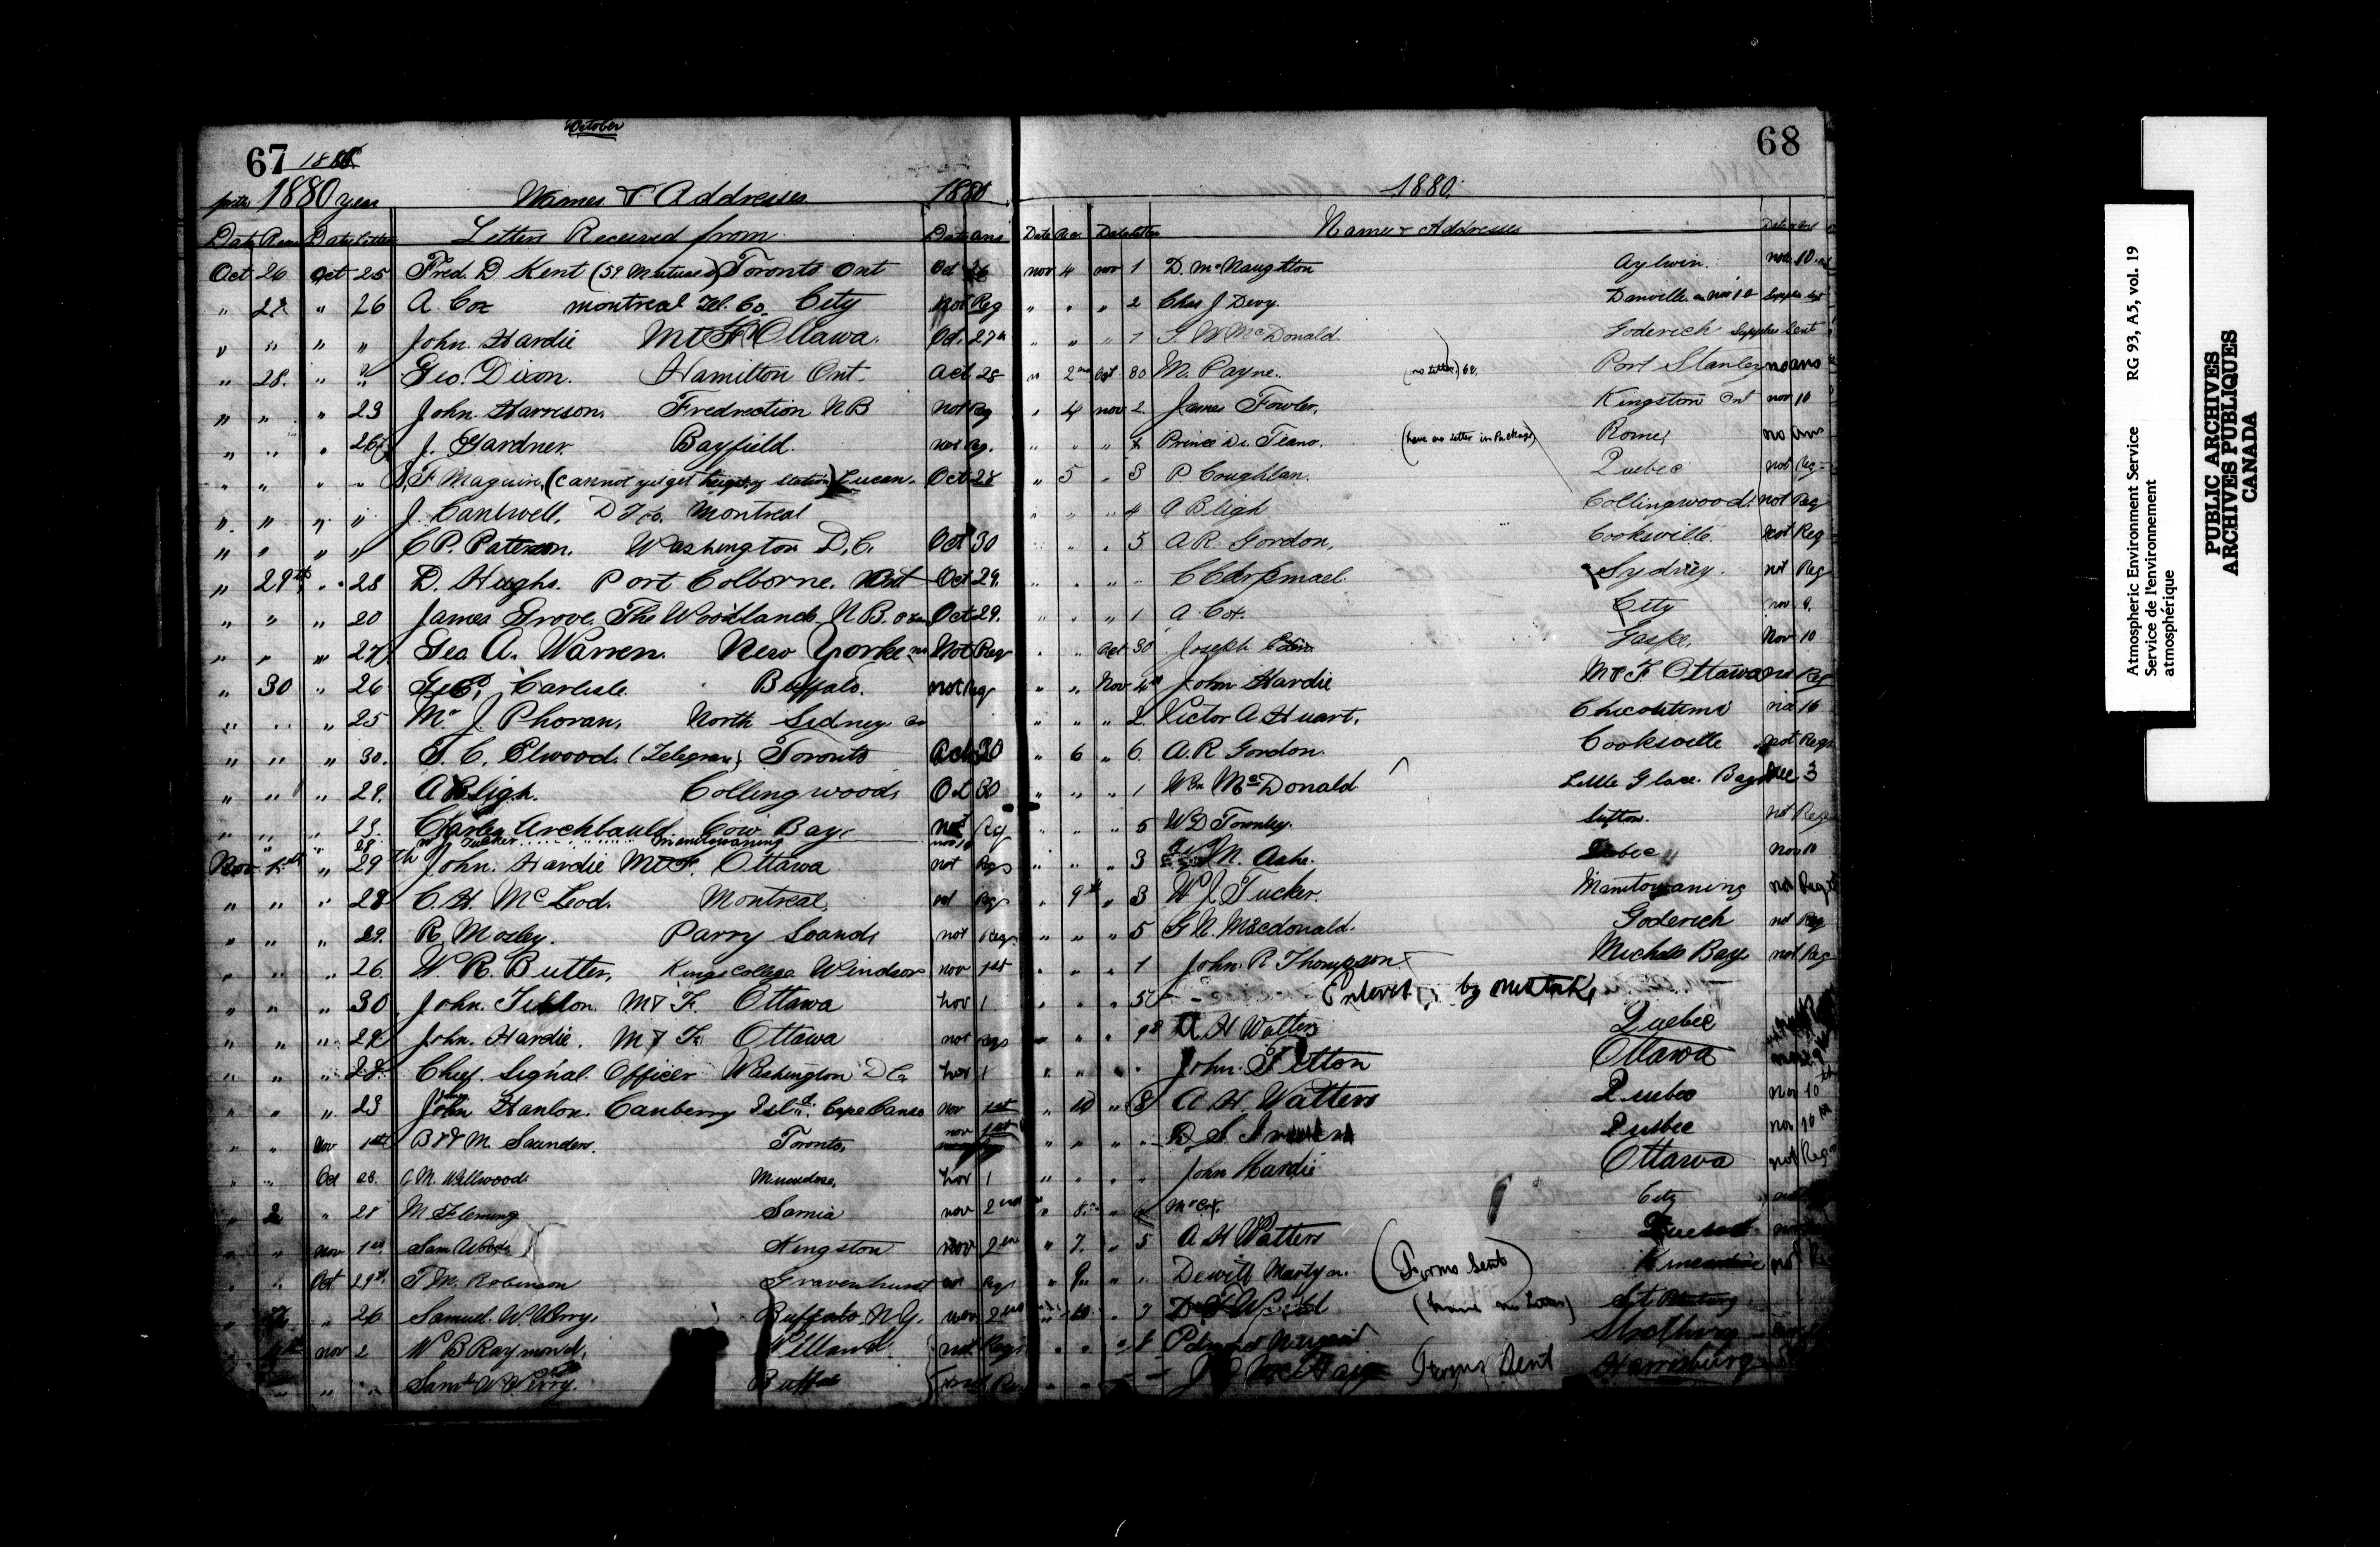 October
67 1880
1880 year Names & Addresses 1880
Date Rec Date Letter Letters Received from Date ans
Oct 26 Oct 25 Fred. D. Kent (59 Mutual St) Toronto Ont Oct 26
" 27 " 26 A. Cox Montreal Tel. Co. City Not Reg
" " " " John Hardie M & F Ottawa. Oct. 27th
" 28. " " Geo. Dixon. Hamilton Ont. Oct 28
" " " 23 John. Harrison, Fredrection N B Not Reg
" " " 26 J. Gardner. Bayfield. not Reg.
" " " " F Maguire, (cannot yet get height of station) Lucan. Oct 28
" " " " J. Cantwell, D T Co. Montreal
" " " " C P. Paterson. Washington D. C. Oct 30
" 29th " 28 D. Hughs. Port Colborne. Ont Oct 29.
" " " 20 James Grove. The Woodlands N B. Oct 29.
" " " 27 Geo A. Warren. New Yorke Not Reg
" 30 " 26 Carlisle. Buffalo. not Reg
" " " 25 Mr J Phoran, North Sidney
" " " 30. T. C. Elwood, (Telegram) Toronto Oct 30
" " " 29. A Bligh. Collingwood, Oct 30
" " " 23. Charles Archbauld. Cow Bay, not Reg
" " " 28 W J Tucker Manitowaning nov 10
Nov 1st " 29th John. Hardie M & F. Ottawa not Reg
" " " 28 C. H. McLeod. Montreal, not Reg
" " " 29. R. Mosley. Parry Sound, not Reg
" " " 26. W. R. Butler, Kings College Windsor nov 1st
" " " 30 John. Tilton M & F. Ottawa nov 1
" " " 29 John. Hardie. M & F. Ottawa not Reg
" " " 28 Chief. Signal. Officer Washington D C. nov 1
" " " 23 John Hanlon. Canberry Isld. Cape Canso nov 1st
" " Nov 1st B & M. Saunders. Toronto, nov 1st
" " Oct 28. M. Wellwood nov 1
" 2 " 28 M Fleming Sarnia nov 2nd
" " nov 1st Sam Woods Kingston nov 2nd
" " Oct 29th T. M. Robinson Gravenhurst not Reg
" " " 26 Samuel. W. Perry, Buffalo N. Y. nov 2nd
" 4th nov 2 W B Raymond, Welland. not Reg
" " " " Saml W Perry. Buffalo not Re
68
1880.
Date Rec Date Letter Names & Addresses Date ans
nov 4 nov 1 D. McNaughton Aylwin. nov 10
" " " 2 Chas J Devy. Danville nov 10 Supplies Sent
" " " 1 G. W McDonald. Goderich Supplies Sent
" 2nd Oct 30 M. Payne. (no letter) Port Stanley no ans
" 4 nov 2. James Fowler, Kingston Ont nov 10
" " " 2 Prince De Teano. (have no letter in Package) Rome, no ans
" 5 " 3 P Coughlan. Quebec not Reg
" " " 4 A Bligh Collingwood. not Reg
" " " 5 A R. Gordon. Cooksville. not Reg
" " " " C Carpmael. Sydney. not Reg
" " " 1 A. Cox. City nov 9.
" " Oct 30 Joseph Eden Gaspe, Nov 10
" " Nov 4th John Hardie M & F. Ottawa not Reg
" " " 2 Victor A Huart, Checoutimi nov 16
" 6 " 6 A. R Gordon. Cooksville not Reg
" " " 1 Wm McDonald Little Glace. Bay Dec 3
" " " 5 W D Townley. Sutton. not Reg
" " " 3 M. Ashe. Quebec Nov 10
" 9th " 3 W J Tucker. Manitowaning not Reg
" " " 5 G N. Macdonald. Goderich not Reg
" " " 1 John. R Thompson. Michals Bay. not Reg
" " " 5 Entered by mistake
" " " A H Watters Quebec
" " " " John. Tilton Ottawa
" 10 " 8 A H. Watters Quebec nov 10th
" " " " D S Quebec nov 10th
" " " " John Hardie Ottawa not Reg
" 8 " " Mr Cox. City
" 7. " 5 A H Watters Quebec
" 9 " " Dewitt Martyn. (Forms Sent) Kincardine not
" 10 " 7 (have no letter)
" " " 8 Strathroy
" " Forms Sent Harrisburg
Atmospheric Environment Service RG 93, A5, vol. 19
Service de l'environnement
atmosphérique
PUBLIC ARCHIVES
ARCHIVES PUBLIQUES
CANADA